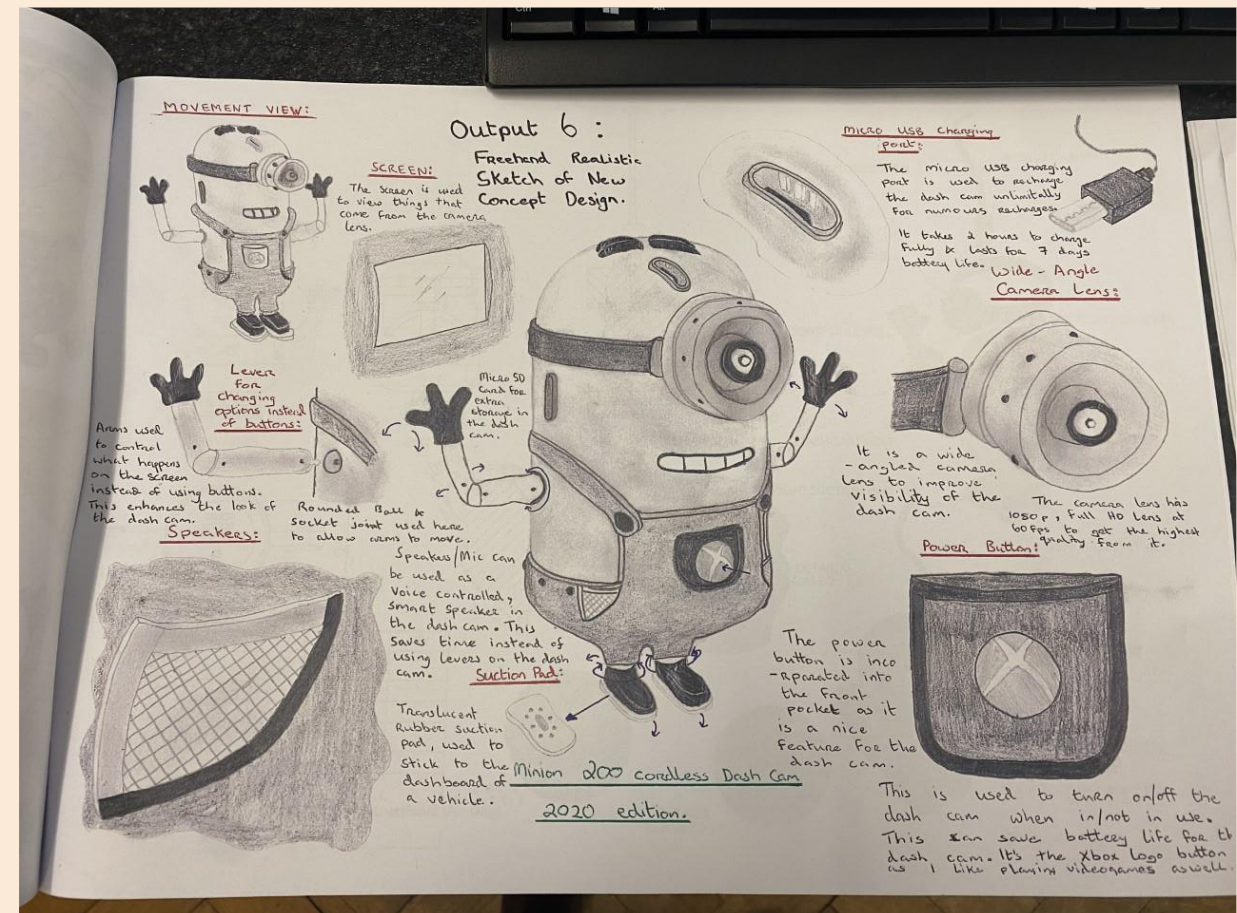 Ctrl
Alt
MOVEMENT VIEW:
Output 6 :
Freehand Realistic
Sketch of New
Concept Design.
SCREEN:
The screen is used
to view things that
come from the camera
lens.
Micro USB Charging
port:
The micro USB charging
port is used to recharge
the dash cam unlimitally
for numours recharges.
It takes 2 hours to charge
fully & lasts for 7 days
battery life.
Wide - Angle
Camera Lens:
Lever
for
changing
options instead
of buttons:
Arms used
to control
what happens
on the screen
instead of using buttons.
This enhances the look of
the dash cam.
Micro SD
Card for
extra
storage in
the dash
cam.
Rounded Ball &
socket joint used here
to allow arms to move.
It is a wide
-angled camera
lens to improve
visibility of the
dash cam.
The camera lens has
1080p, Full HD Lens at
60fps to get the highest
quality from it.
Speakers:
Speakers/Mic can
be used as a
Voice controlled,
smart speaker in
the dash cam. This
saves time instead of
using levers on the dash
cam.
Suction Pad:
Translucent
Rubber suction
pad, used to
stick to the
dashboard of
a vehicle.
Minion 200 cordless Dash Cam
2020 edition.
Power Button:
The power
button is inco
-rparated into
the front
pocket as it
is a nice
feature for the
dash cam.
This is used to turn on/off the
dash cam when in/not in use.
This can save battery life for th
dash cam. It's the Xbox Logo button
as I like playing videogames aswell.